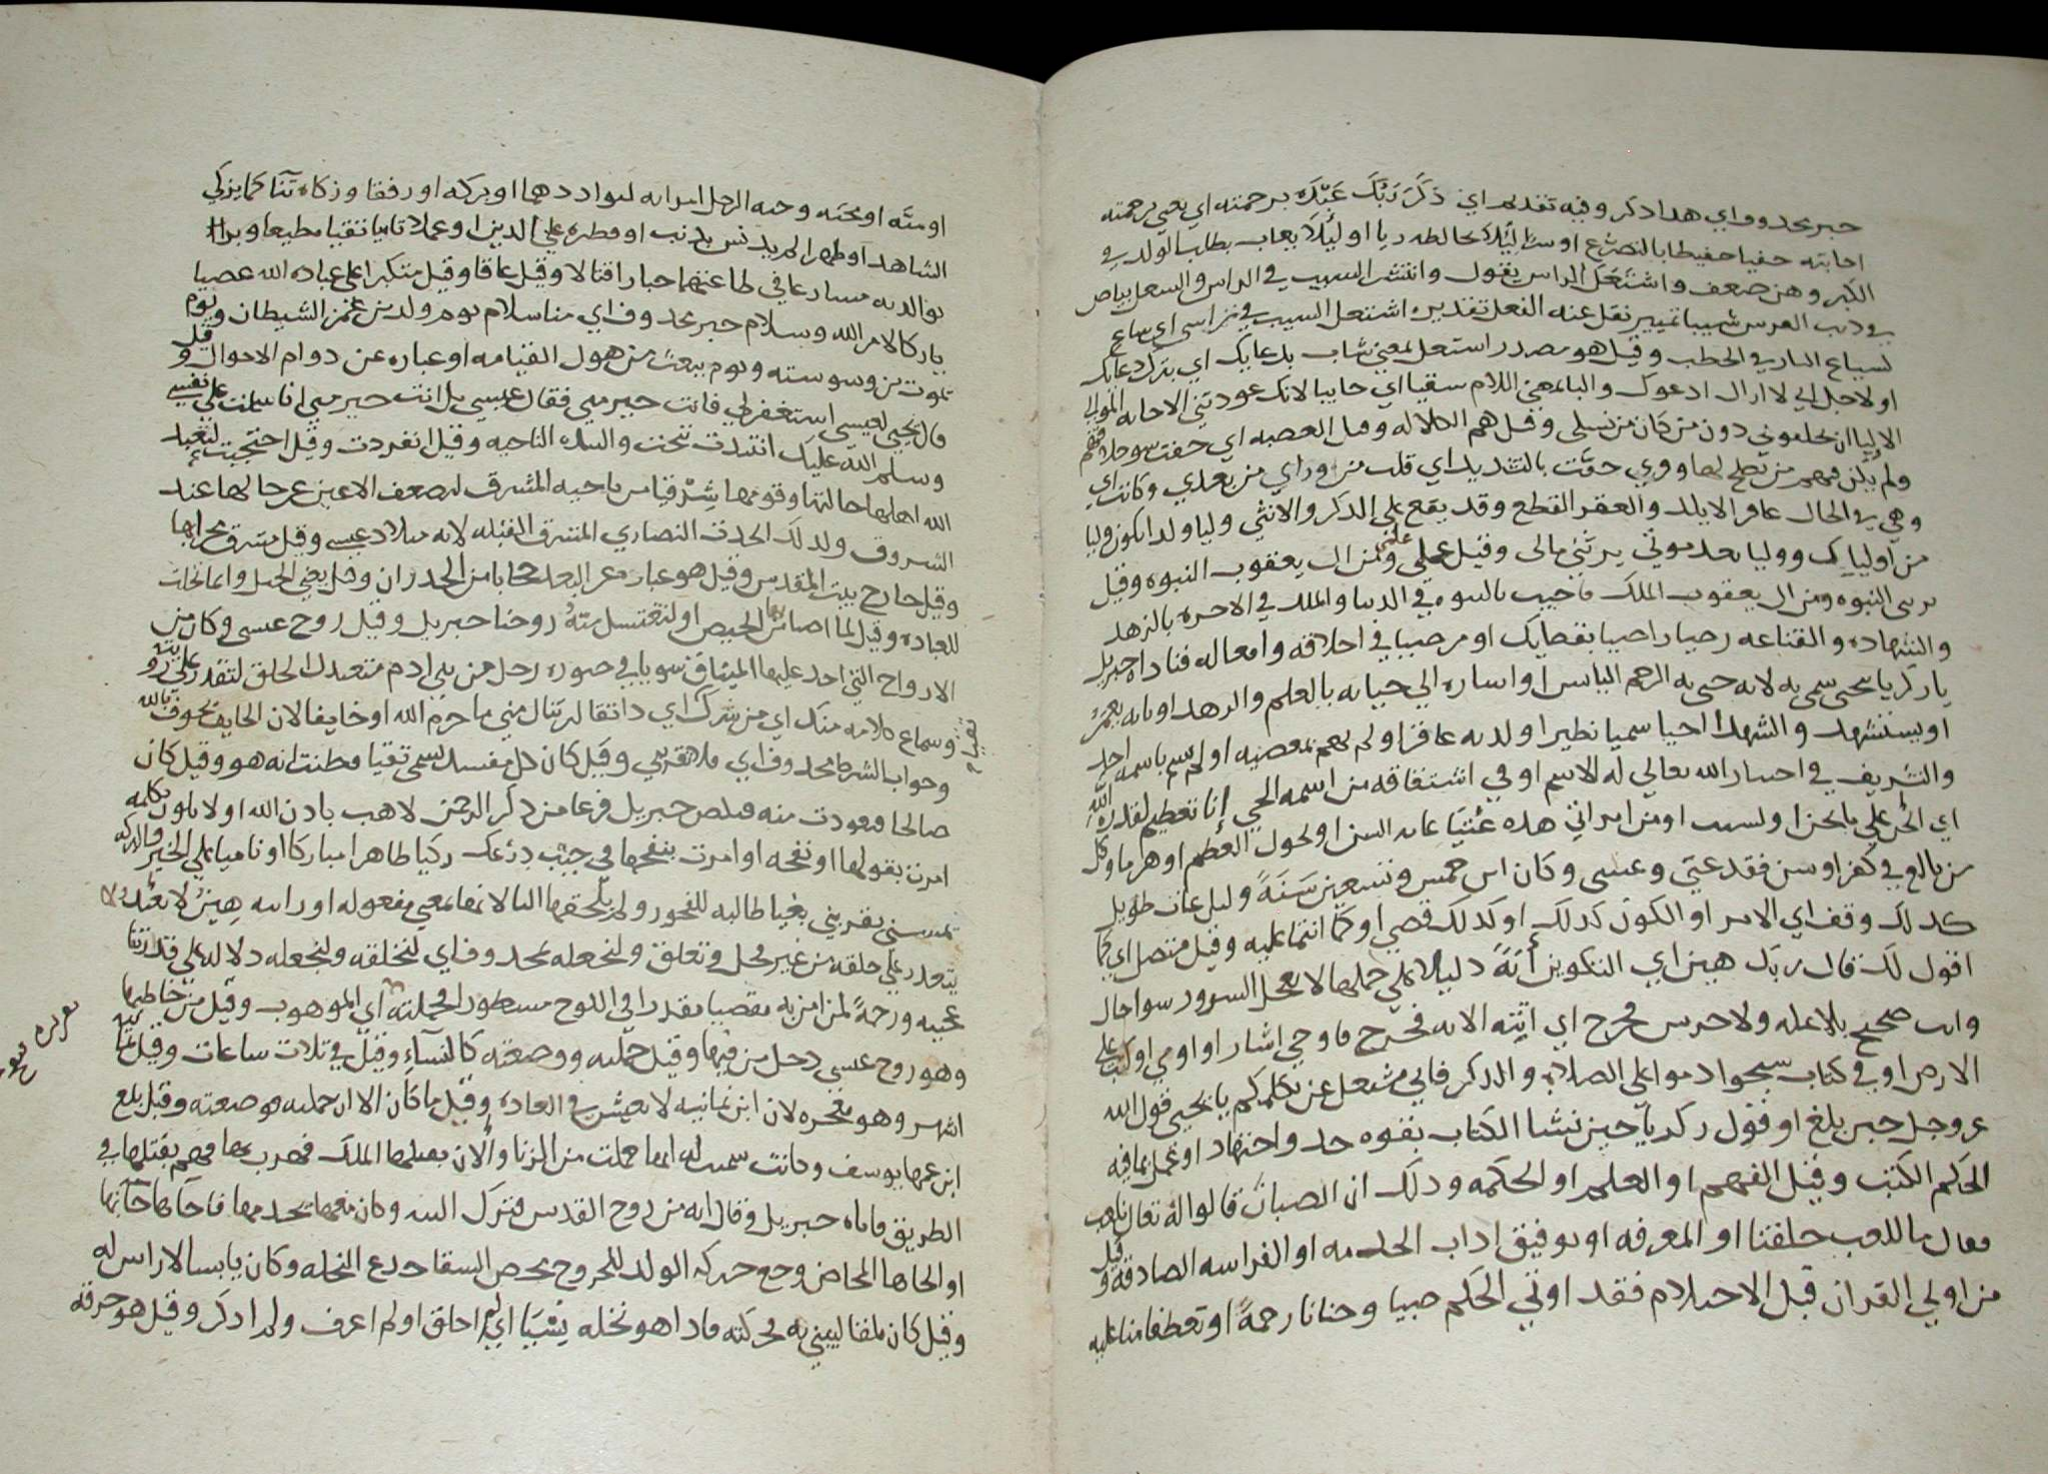 خبر محدوف اي هدا دكر وفيه تقديم اي ذَكَرَ رَبُّكَ عَبْدَه برحمته اي يعني برحمته
اجابته حفيا حفيظا بالتضرع او سرا لِيلا يخالطه ريا او لِيلا يعاب بطلب الولد في
الكبر وهن ضعف واشتعل الراس يقول وانتشر الشيب في الراس والشعل بياض
في دنب الفرس شيبا تمييز نقل عنه الفعل تقديره اشتعل الشيب في راسي اي شاع
كشياع النار في الحطب وقيل هو مصدر اشتعل بمعنى شاب بدعايك اي بترك دعايك
او لاجل اي لا ازال ادعوك والبا بمعني اللام سقيا اي خايبا لانك عودتني الاجابه الموالي
الاوليا ان يخلفوني دون من كان من نسلي وقيل هم الكلاله وقيل العصبه اي خفت سو خلافتهم
ولم يكن فيهم من يصلح لها وروي خفّت بالتشديد اي قلت من وراي من بعدي وكانت اي
وهي في الحال عاقرا لا يلد والعقر القطع وقد يقع على الدكر والانثى وليا ولدا يكون وليا
من اوليايك ووليا بعد موتي يرثني مالي وقيل علمي ومن ال يعقوب النبوه وقيل
يرثني النبوه ومن ال يعقوب الملك فاجيب بالنبوه في الدنيا والملك في الاخره بالزهد
والشهاده والقناعه رضيا راضيا بقضايك او مرضيا في اخلاقه وافعاله فناداه جبريل
يا زكريا يحيى سمي به لانه حيى به الرحم اليابس او اشاره الى حياته بالعلم والزهد او بانه يعمر
او يستشهد والشهدا احيا سميا نظيرا ولد به عاقرا ولم يهم بمعصيه او لم يسم باسمه احد
والتشريف في اختيار الله تعالى له الاسم او في اشتقاقه من اسمه الحي إنا تعظيم لقدرة اللّه
اي الحال علي ما نحن او لسبب او من امراتي هده عُتِيّا غايه السن او نحول العظم او هرما وكل
من بالغ في كفر او سن فقد عتى وعسى وكان ابن خمس وتسعين سَنَةً وليل عات طويل
كدلك وقف اي الامر او الكون كدلك او كدلك قضي او كما انتما عليه وقيل متصل اي كما
اقول لك قال ربك هين اي التكوين أَيَةً دليلا على حملها لا يعجل السرور سويا حال
وانت صحيح بلا عله ولا خرس فخرج اي اتته الايه فخرج فاوحي اشار او اومي او كتب على
الارض او في كتاب سبحوا دموا علي الصلاه والدكر فاني مشتغل عن تكليمكم يا يحيى قول الله
عز وجل حين بلغ او قول زكريا حين نشا الكتاب بقوه جد واجتهاد او عمل بما فيه
الحكم الكتب وقيل الفهم او العلم او الحكمه ودلك ان الصبيان قالوا له تعال نلعب
فقال ما للعب خلقنا او المعرفه او توفيق اداب الخدمه او الفراسه الصادقة وقيل
من اولي القران قبل الاحتلام فقد اوتي الحكم صبيا وحنانا رحمةً او تعطفا منا عليه
او منَّه او محبَه وحبه الرجل امراته لتواددهما او بركه او رفقا وزكاه ثنا كما يزكي
الشاهد او طهرا لم يدنس بدنب او فطره علي الدين او عملا ناميا تقيا مطيعا وبرا
بوالديه مسارعا في طاعتهما جبارا قتالا وقيل عاقا وقيل متكبرا علي عباد الله عصيا
تاركا لامر الله وسلام خبر محدوف اي منا سلام يوم ولد من غمز الشيطان ويوم
يموت من وسوسته ويوم يبعث من هول القيامه او عباره عن دوام الاحوال وقيل
قال يحيى لعيسى استغفر لي فانت خير مني فقال عيسى بل انت خير مني انا سلمت علي نفسي
وسلم الله عليك انتبدت تنحت والنبده الناحيه وقيل انفردت وقيل احتجبت لتعبد
الله اهلها خالتها وقومها شِرْقيا من ناحيه المشرق لضعف الاعين عن حالها عند
الشروق ولدلك اتخدت النصاري المشرق القبله لانه ميلاد عيسى وقيل مشرق محرابها
وقيل خارج بيت المقدس وقيل هو عباره عن البعد حجابا من الجدران وقيل يعني الجبل وانما اتخدت
للعباده وقيل لما اصابها الحيض او لتغتسل منهُ روحنا جبريل وقيل روح عيسى وكان من
الارواح التي اخد عليها الميثاق سويا في صوره رجل من بني ادم معتدل الخلق لتقدر علي رؤيته
وسماع كلامه منك اي من شرك اي دا تقا لم تنال مني ما حرم الله او خايفا لان الخايف يخوف بالله
وجواب الشرط محدوف اي فلا تقربني وقيل كان كل مفسد يسمى تقيا فظنت انه هو وقيل كان
صالحا فعودت منه فتلص جبريل فزعا من دكر الرحمن لاهب بادن الله او لاكون بكلمه
امرت بقولها او نفخه او امرت بنفخها في جيْب دِرْعك زكيا طاهرا مباركا او ناميا علي الخير والبركه
يمسسني يقربني بغيا طالبه للفجور ولم يلحقها التا لانها بمعني مفعوله او راسه هين لا يتعدر ولا
يتعدر علي خلقه من غير فحل وتعلق ولنجعله بمحدوف اي لنخلقه ولنجعله دلاله علي قدرتنا
عجيبه ورحمةً لمن امن به مقضيا مقدرا في اللوح مسطورا فحملته اي الموهوب وقيل من خاطبها
وهو روح عيسى دخل من فيها وقيل حملته ووضعته كالنساء وقيل في تلات ساعات وقيل ثمانية
اشهر وهو معجزه لان ابن ثمانيه لا يعيش في العاده وقيل ما كان الا ان حملته فوضعته وقيل بلغ
ابن عمها يوسف وكانت سميت له انها حملت من الزنا والان يقتلها الملك فهرب بها فهم بقتلها في
الطريق فاتاه جبريل وقال انه من روح القدس فترك اليه وكان معها يخدمها فاجاها جابها
او الجاها المخاض وجع حركه الولد للخروج بمخض السقا جدع النخله وكان يابسا لا راس له
وقيل كان ملقا ليبني به فحركته فادا هو نخله نِسْيًا اي لم اخلق او لم اعرف ولم ادكر وقيل هو خرقه